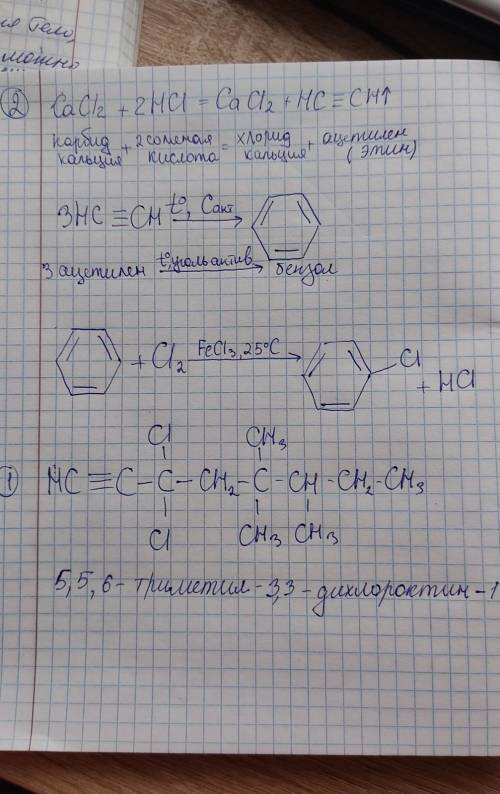 ия Тело,
можно
② CaCl₂ + 2HCl = CaCl₂ + HC≡CH↑
карбид кальция + 2 соляная кислота = хлорид кальция + ацетилен (этин)
3HC≡CH t°, Cакт
3 ацетилен t°, уголь актив бензол
+ Cl₂ FeCl₃, 25°C Cl + HCl
Cl CH₃
1 HC≡C-C-CH₂-C-CH-CH₂-CH₃
Cl CH₃ CH₃
5,5,6-триметил-3,3-дихлороктин-1